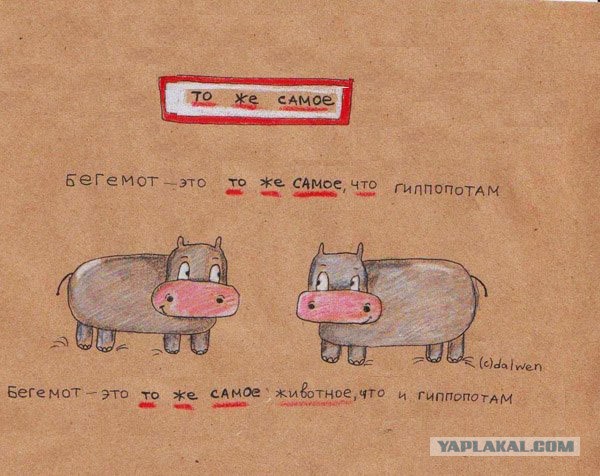 ТО ЖЕ САМОЕ
БЕГЕМОТ – ЭТО ТО ЖЕ САМОЕ, ЧТО ГИППОПОТАМ
(c)dalwen
БЕГЕМОТ – ЭТО ТО ЖЕ САМОЕ ЖИВОТНОЕ, ЧТО И ГИППОПОТАМ
YAPLAKAL.COM